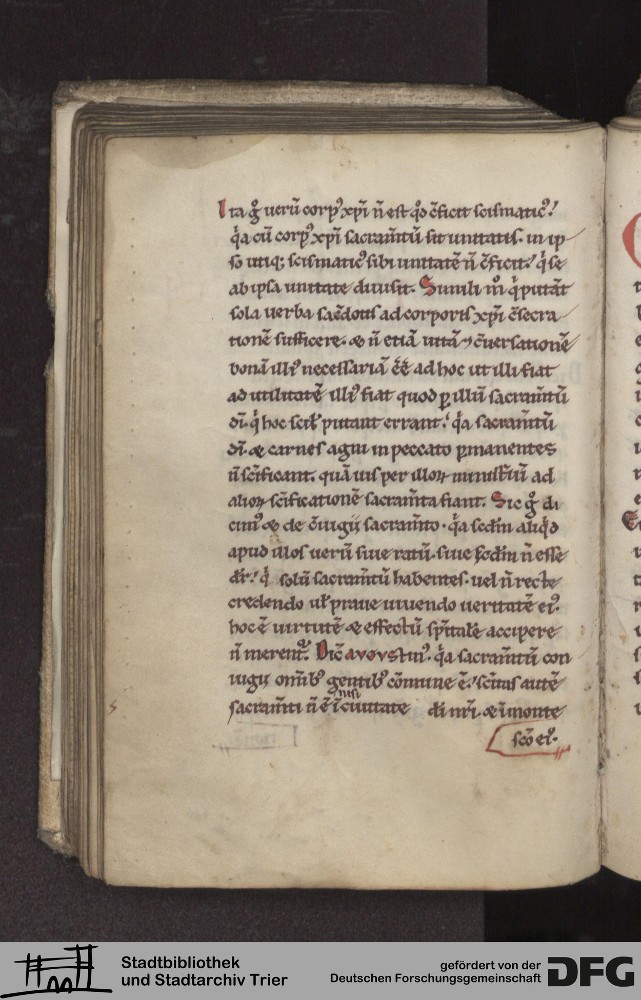 Ita g̊ uerũ corpꝰ xp̃i ñ est qd̕ c̃ficit scismaticꝰ.
q̕a cũ corpꝰ xp̃i sacram̃tũ sit unitatis. in ip
so utiq; scismaticꝰ sibi unitatẽ ñ c̃ficit. q̕ se
ab ipsa unitate diuisit. Simili m̊ q̕ putãt
sola uerba sac̃dotis ad corporis xp̃i c̃secra
tionẽ sufficere. & ñ etiã uitã ⁊ c̃uersationẽ
bonã illiꝰ necessariã ẽẽ ad hoc ut illi fiat
ad utilitatẽ illiꝰ fiat quod ꝑ illũ sacram̃tũ
di. q̕ hoc scił putant errant. q̕a sacram̃tũ
dñi. & carnes agni in peccato ꝑmanentes
ñ sc̃ificant. quãuis per illoꝝ ministiũ ad
alioꝝ sc̃ificationẽ sacram̃ta fiant. Sic g̊ di
cimꝰ & de c̃iugij sacram̃to. q̕a scd̃m aliqd̕
apud illos uerũ siue ratũ. siue scd̃m ñ esse
dr̃. q̕ solũ sacram̃tũ habentes. uel ñ recte
credendo uł praue uiuendo ueritatẽ eiꝰ.
hoc ẽ uirtutẽ & effectũ sp̃italẽ accipere
ñ merent᷑. Dic̃ avgvstinꝰ. q̕a sacram̃tũ con
iugij omĩbꝰ gentibꝰ cõmune ẽ. sc̃itas autẽ
sacram̃ti ñ ẽ nisi ĩ ciuitate di nr̃i. & ĩ monte
sc̃o eiꝰ.
Stadtbibliothek
und Stadtarchiv Trier
gefördert von der
Deutschen Forschungsgemeinschaft
DFG